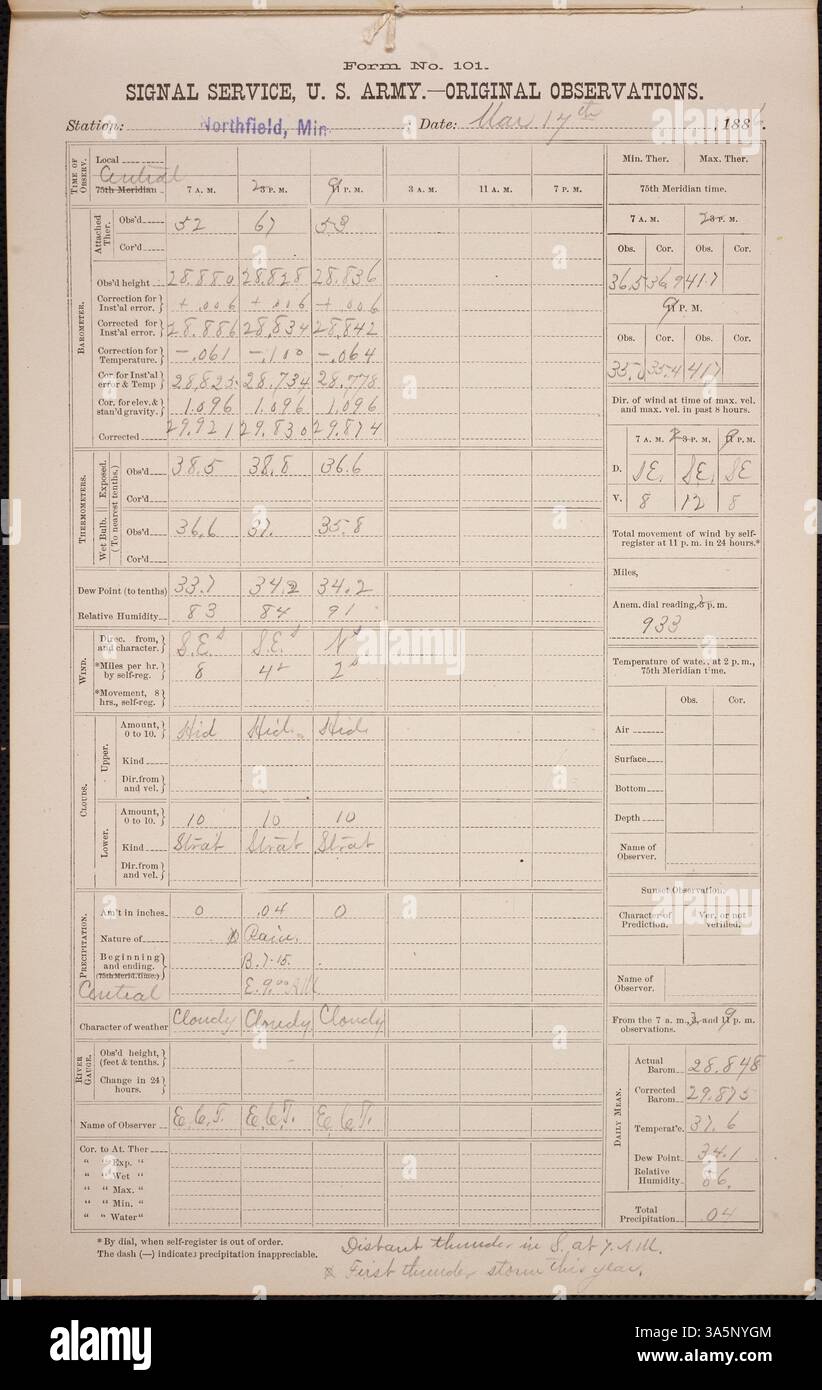 Form No. 101.
SIGNAL SERVICE, U. S. ARMY.—ORIGINAL OBSERVATIONS.
Station: Northfield, Min ; Date: Mar 17th , 188 .
TIME OF OBSERV. Local
Central
75th Meridian 7 A. M. 2 3 P. M. 9 11 P. M. 3 A. M. 11 A. M. 7 P. M.
Min. Ther. Max. Ther.
75th Meridian time.
7 A. M. 2 3 P. M.
Obs. Cor. Obs. Cor.
36.5 36.9 41.7
9 11 P. M.
Obs. Cor. Obs. Cor.
35.4 41.7
BAROMETER.
Attached Ther. Obs'd 52 67 53
Cor'd
Obs'd height 28.880 28.828 28.836
Correction for Inst'al error. + .006 + .006 + .006
Corrected for Inst'al error. 28.886 28.834 28.842
Correction for Temperature. -.061 -.100 -.064
Cor for Inst'al error & Temp 28.825 28.734 28.778
Cor. for elev. & stan'd gravity. 1.096 1.096 1.096
Corrected 29.921 29.830 29.874
Dir. of wind at time of max. vel. and max. vel. in past 8 hours.
7 A. M. 2 3 P. M. 9 P. M.
D. SE. SE. SE
V. 8 12 8
THERMOMETERS.
(To nearest tenths.)
Exposed. Obs'd 38.5 38.8 36.6
Cor'd
Wet Bulb. Obs'd 36.6 37. 35.8
Cor'd
Total movement of wind by self-register at 11 p. m. in 24 hours.*
Miles,
Anem. dial reading, 3 p. m.
933
Dew Point (to tenths) 33.7 34.2 34.2
Relative Humidity 83 84 91
WIND.
Direc. from, and character. S.E. S.E. N
*Miles per hr. by self-reg. 8 4 2
*Movement, 8 hrs., self-reg.
Temperature of water at 2 p. m., 75th Meridian time.
Obs. Cor.
Air
Surface
Bottom
Depth
Name of Observer.
CLOUDS.
Upper. Amount, 0 to 10. Hid Hid. Hid
Kind
Dir. from and vel.
Lower. Amount, 0 to 10. 10 10 10
Kind Strat Strat Strat
Dir. from and vel.
Sunset Observation.
Character of Prediction. Ver. or not verified.
Name of Observer.
PRECIPITATION.
Am't in inches. 0 .04 0
Nature of Rain.
Beginning and ending. (75th Merid. time.) B. 7.15.
Central E. 9.00 A.M
Character of weather Cloudy Cloudy Cloudy
RIVER GAUGE. Obs'd height, (feet & tenths.)
Change in 24 hours.
Name of Observer E.C.T. E.C.T. E.C.T.
From the 7 a. m., 3, and 11 9 p. m. observations.
DAILY MEAN.
Actual Barom. 28.848
Corrected Barom. 29.875
Temperat'e. 37.6
Dew Point 34.1
Relative Humidity 86.
Total Precipitation .04
Cor. to At. Ther
" " Exp. "
" " Wet "
" " Max. "
" " Min. "
" " Water "
* By dial, when self-register is out of order.
The dash (—) indicates precipitation inappreciable.
Distant thunder in S. at 7. A.M.
* First thunder storm this year.
alamy
Image ID: 3A5NYGM
www.alamy.com